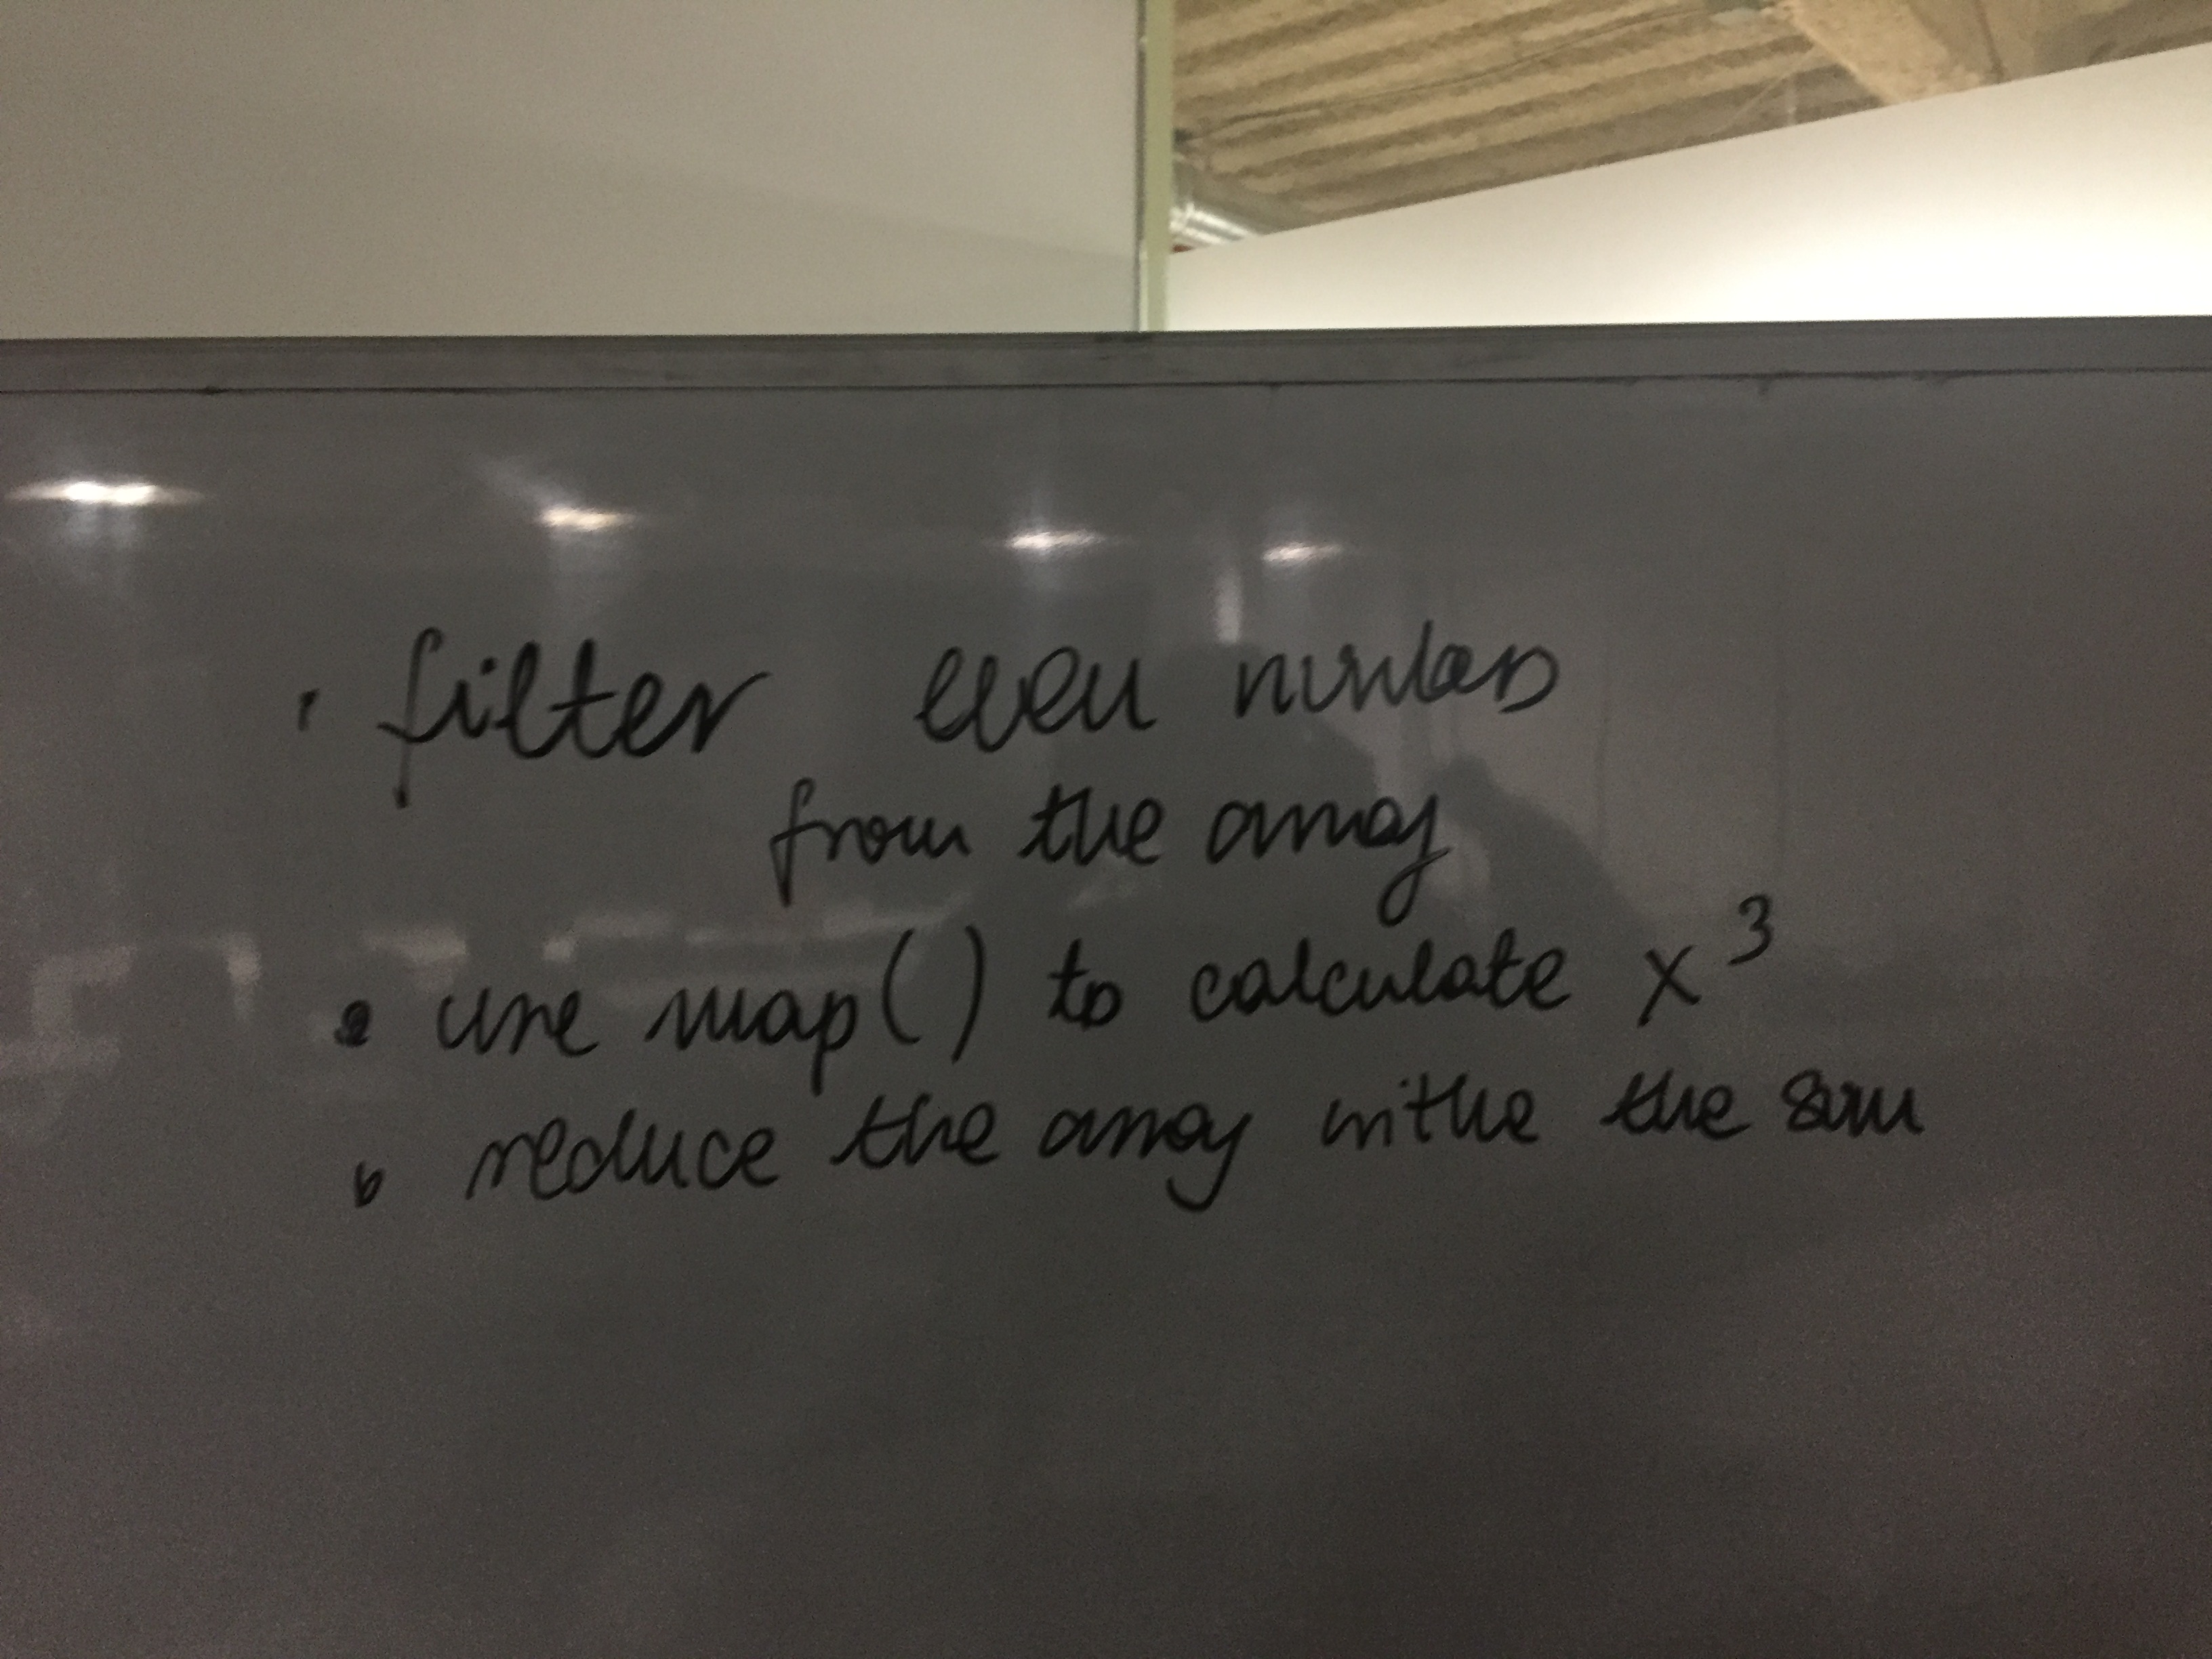 • filter even numbers
from the array
• use map() to calculate x³
• reduce the array withe the sum